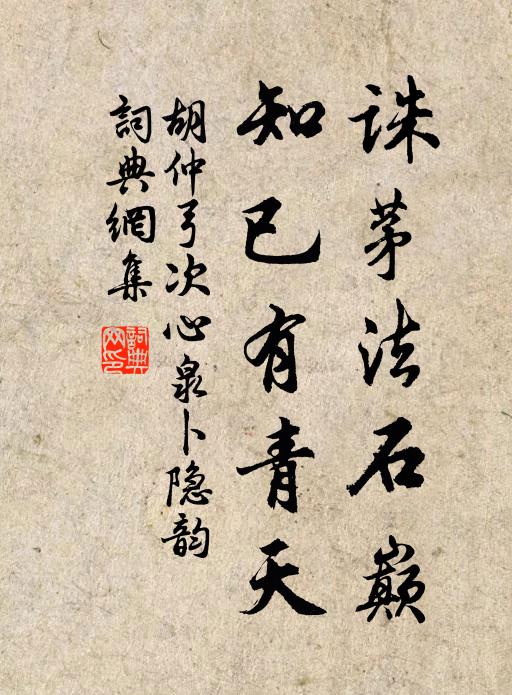 誅茅法石巔
知已有青天
胡仲弓次心泉卜隐韵
詞典網集
詞典網印